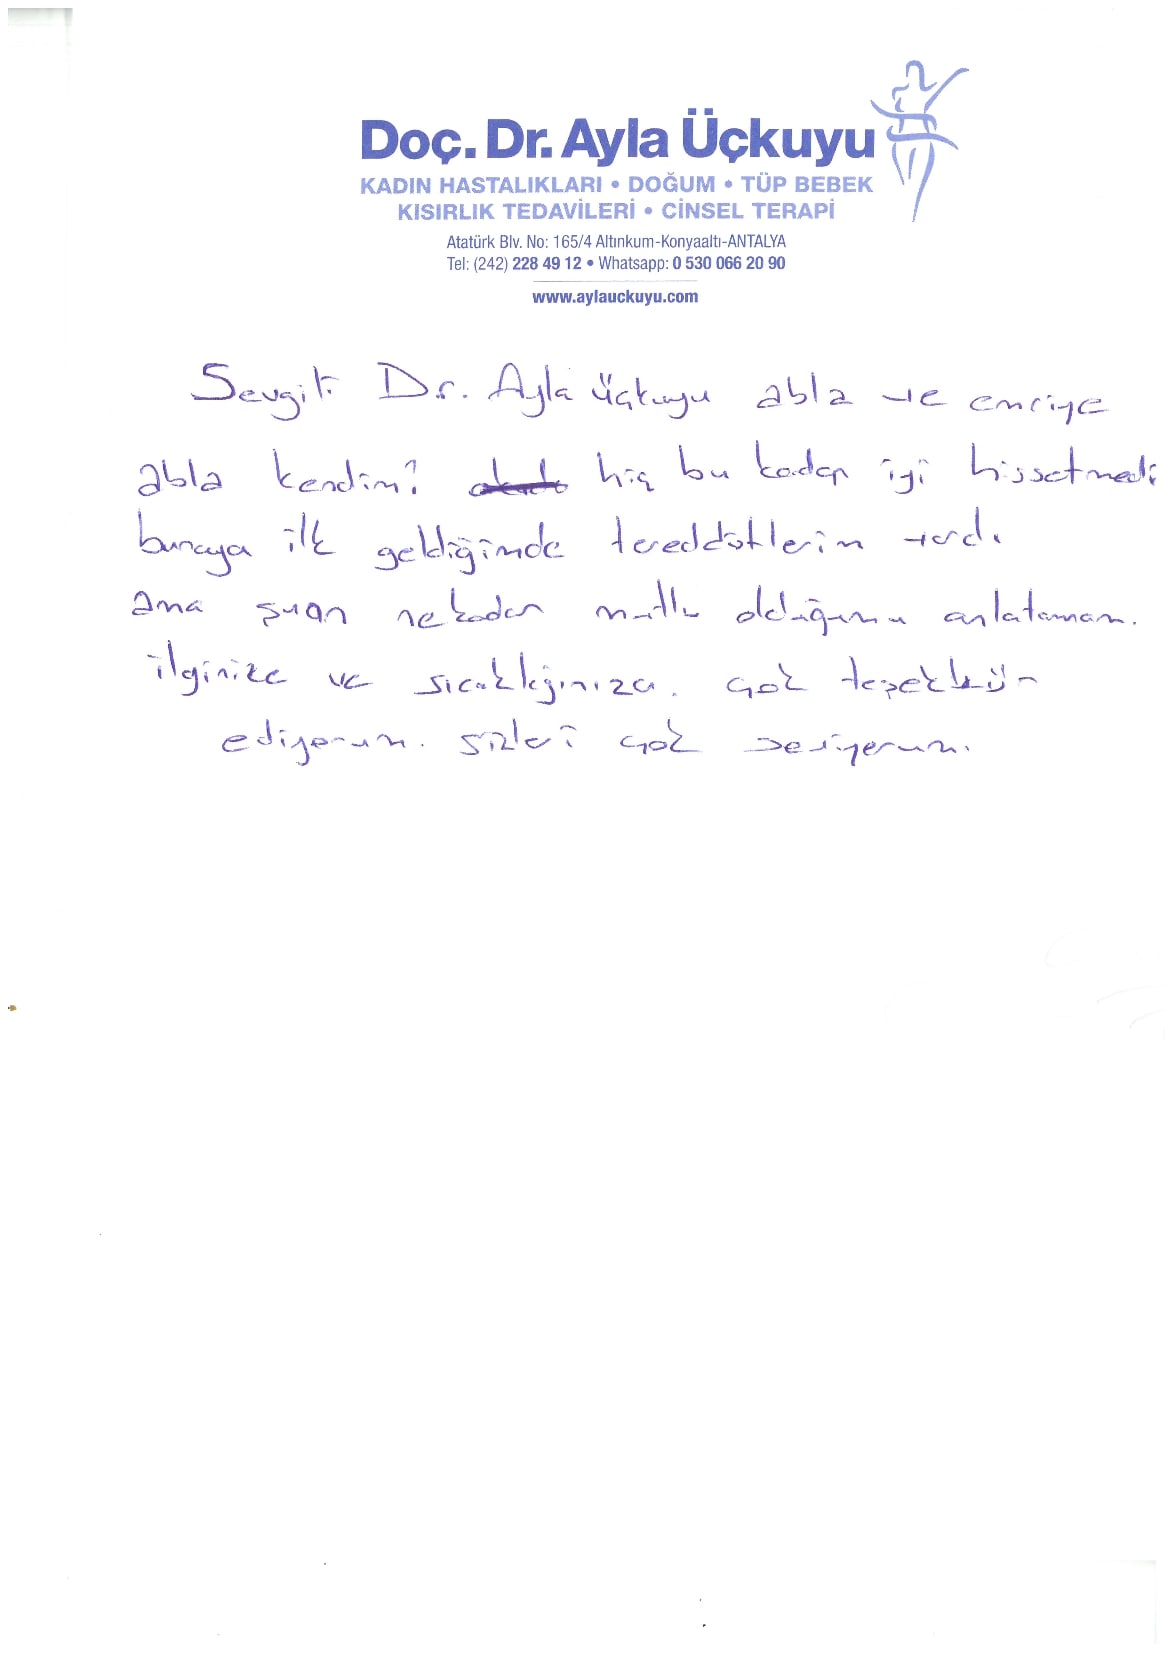 Doç. Dr. Ayla Üçkuyu
KADIN HASTALIKLARI • DOĞUM • TÜP BEBEK
KISIRLIK TEDAVİLERİ • CİNSEL TERAPİ
Atatürk Blv. No: 165/4 Altınkum-Konyaaltı-ANTALYA
Tel: (242) 228 49 12 • Whatsapp: 0 530 066 20 90
www.aylauckuyu.com
Sevgili Dr. Ayla üçkuyu abla ve emriye
abla kendimi hiç bu kadar iyi hissetmedi
buraya ilk geldiğimde tereddütlerim vardı
ama şuan nekadar mutlu olduğumu anlatamam.
ilginize ve sıcaklığınıza. çok teşekkür
ediyorum. sizleri çok seviyorum.